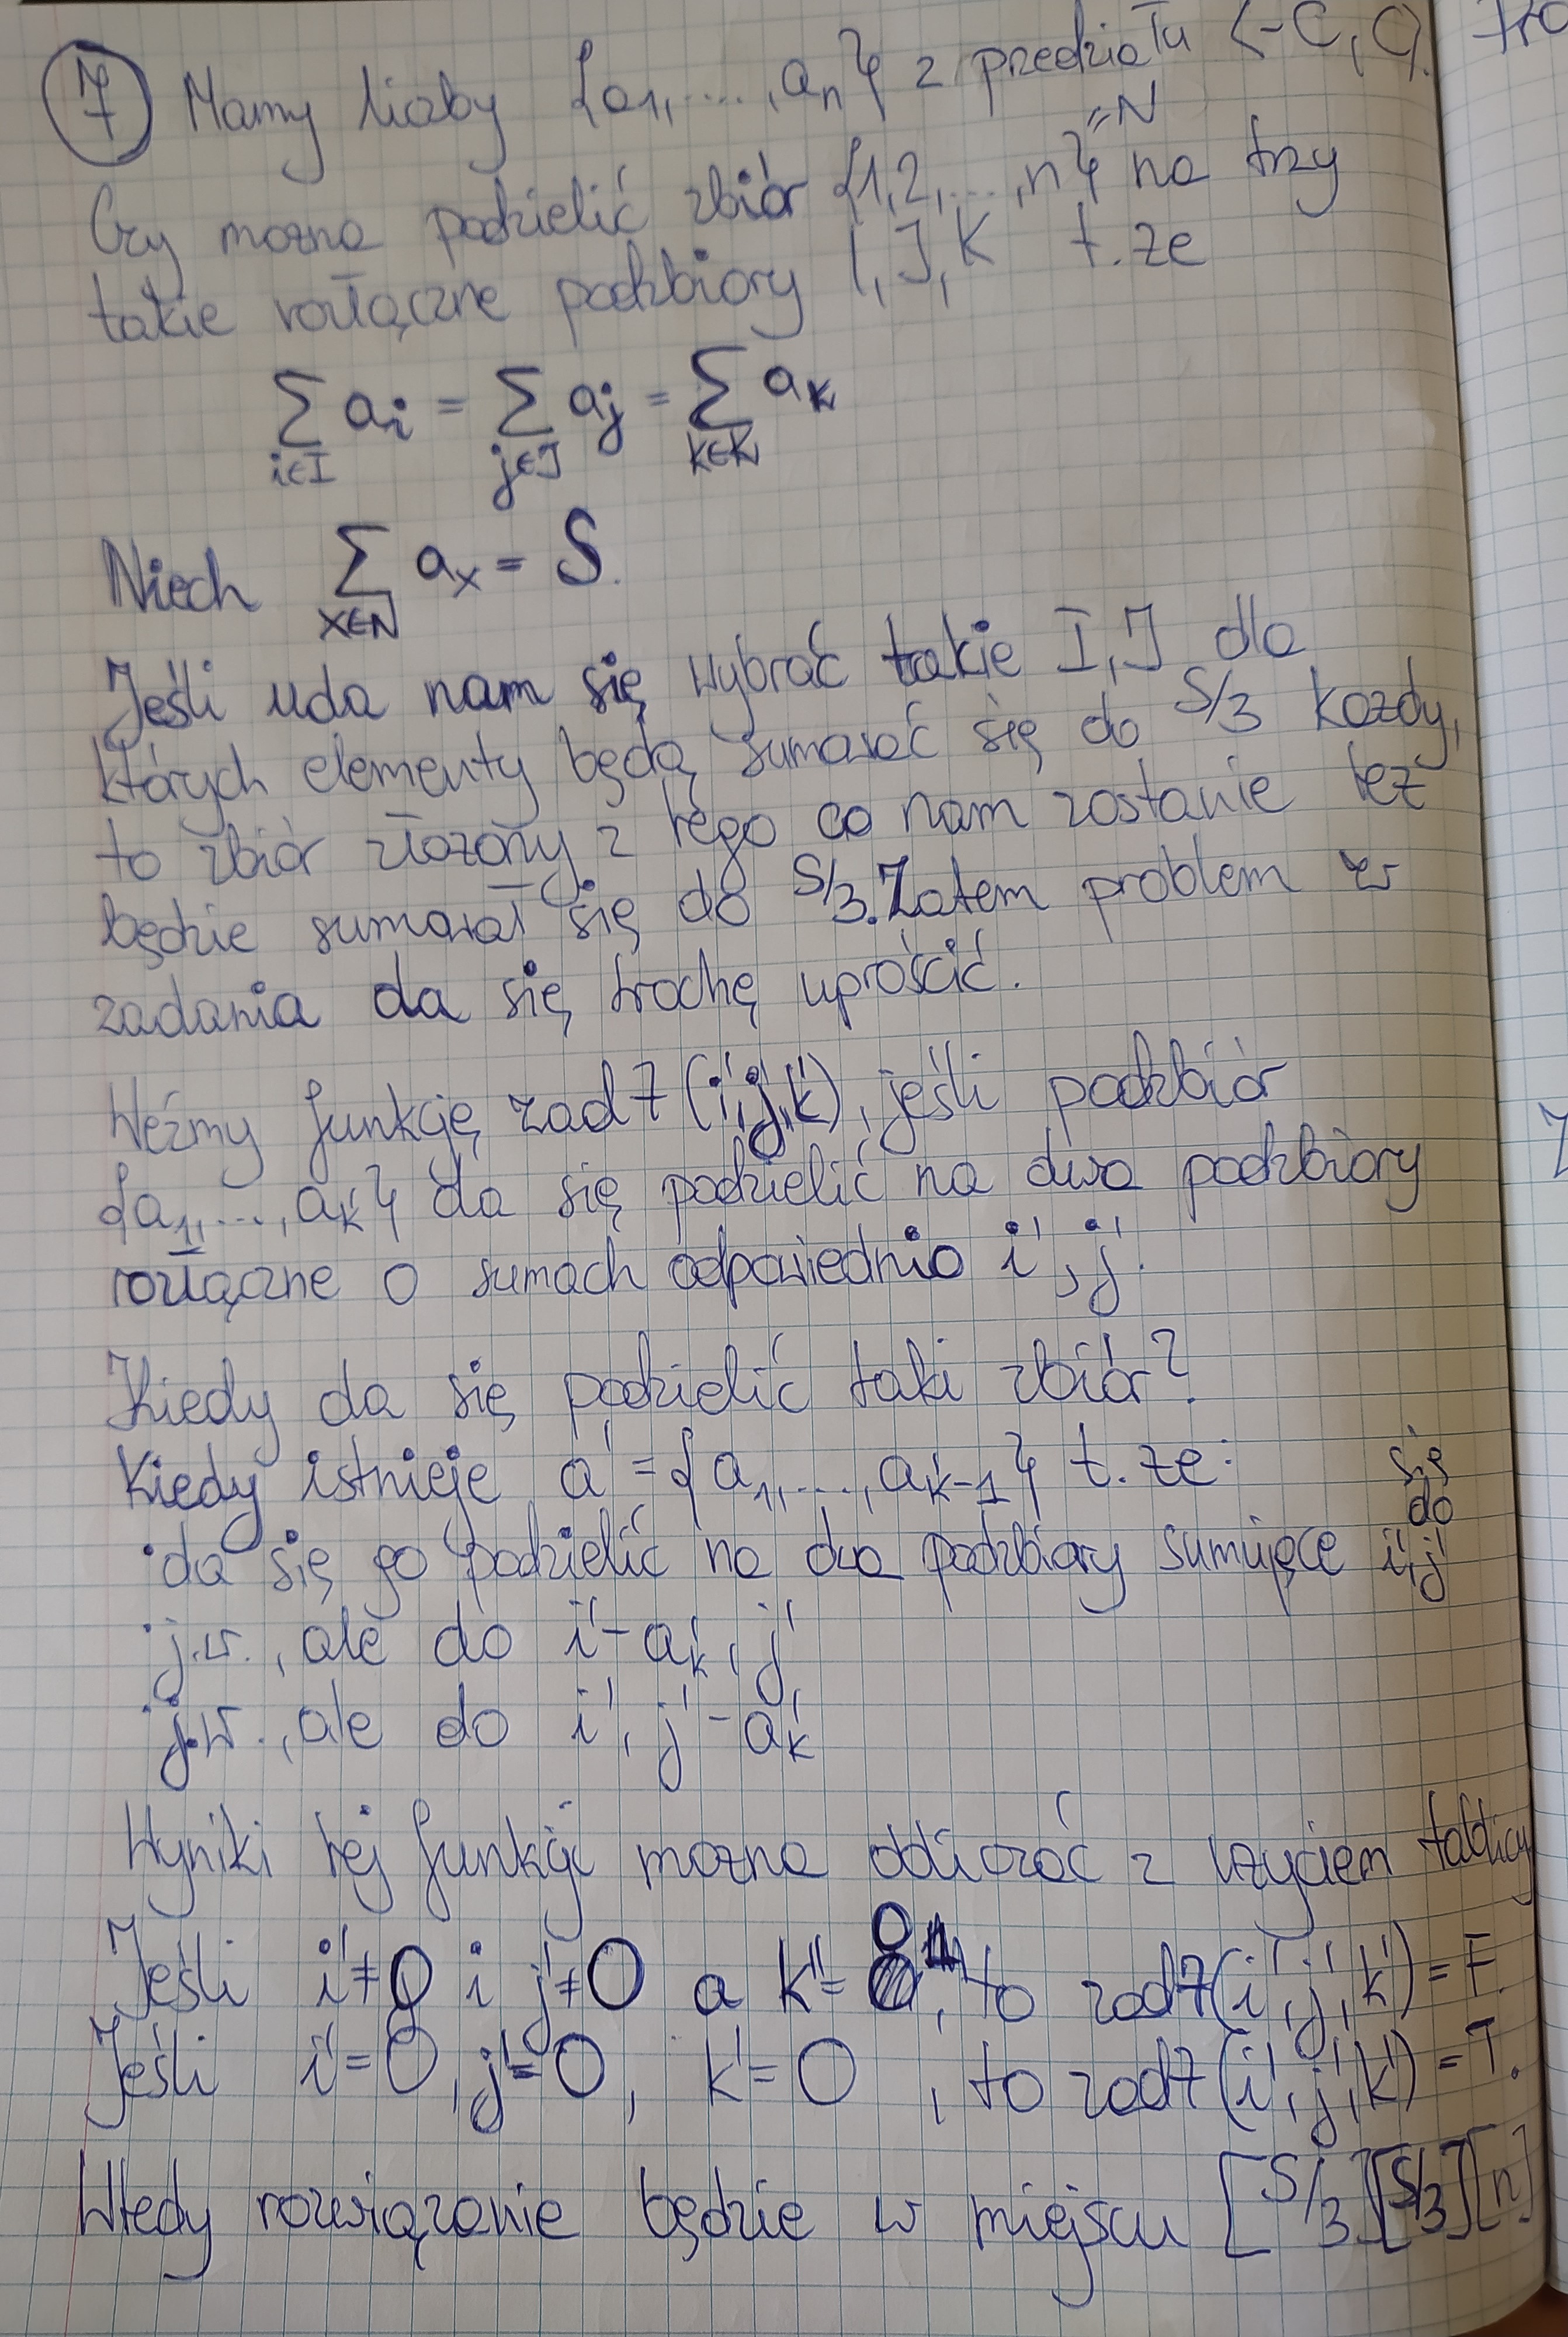 7 Mamy liczby {a1, ...., an} z przedziału <-C, C>.
Czy można podzielić zbiór {1,2,...,n}=N na trzy
takie rozłączne podzbiory I, J, K t.że
∑ ai = ∑ aj = ∑ ak
i∈I j∈J k∈K
Niech ∑ ax = S.
x∈N
Jeśli uda nam się wybrać takie I, J dla
których elementy będą sumować się do S/3 każdy,
to zbiór złożony z tego co nam zostanie też
będzie sumował się do S/3. Zatem problem w
zadania da się trochę uprościć.
Weźmy funkcję zad7(i',j',k'), jeśli podzbiór
{a1, ..., ak'} da się podzielić na dwa podzbiory
rozłączne o sumach odpowiednio i', j'.
Kiedy da się podzielić taki zbiór?
Kiedy istnieje a' = {a1, ..., ak-1} t.że:
• da się go podzielić na dwa podzbiory sumujące się do i',j'
• j.w., ale do i'-ak', j'
• j.w., ale do i', j'-ak'
Wyniki tej funkcji można obliczać z użyciem tablicy
Jeśli i'≠0 i j'≠0 a k'= 0, to zad7(i',j',k')=F.
Jeśli i'=0, j'=0, k'=0, to zad7(i',j',k')=T.
Wtedy rozwiązanie będzie w miejscu [S/3][S/3][n]